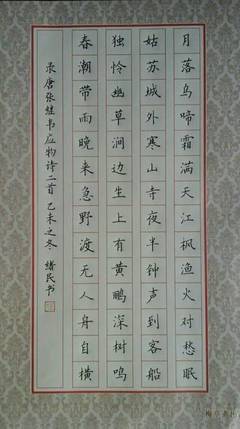 月落乌啼霜满天江枫渔火对愁眠
姑苏城外寒山寺夜半钟声到客船
独怜幽草涧边生上有黄鹂深树鸣
春潮带雨晚来急野渡无人舟自横
录唐张继韦应物诗二首 乙未之冬 绪民书